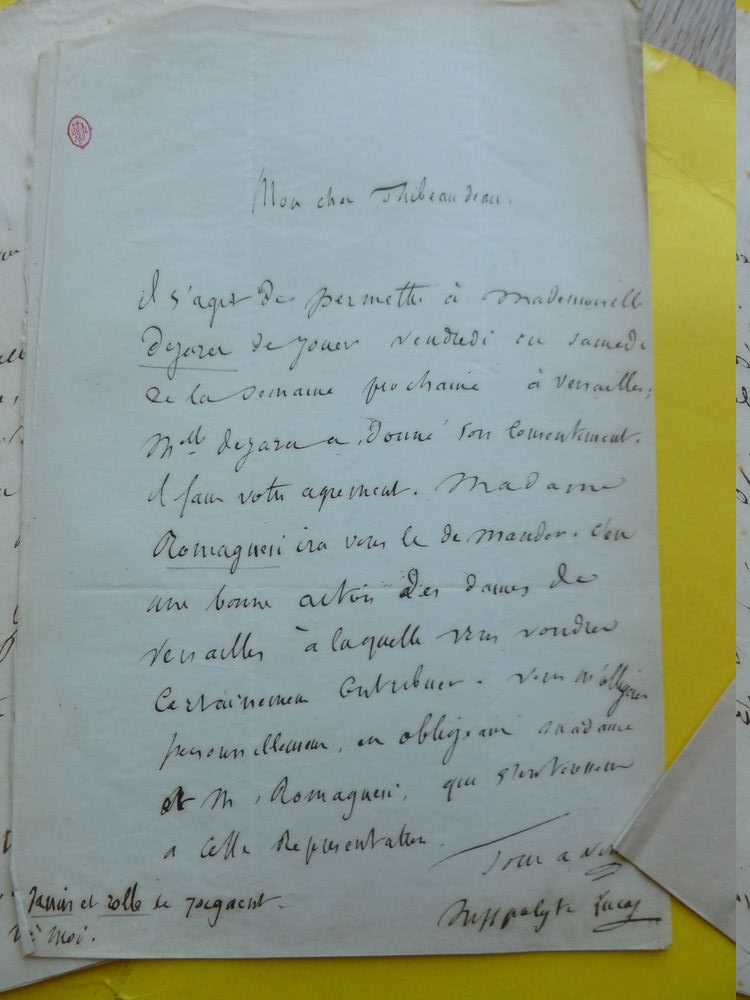 Mon cher Thibeaudeau.
il s'agit de permettre à Mademoiselle
Dejazet de jouer vendredi ou samedi
de la semaine prochaine à Versailles;
Melle dejazet a donné son consentement.
il faut votre agrement. Madame
Romagnesi ira vous le demander. c'est
une bonne action des dames de
Versailles à laquelle vous voudrez
certainement contribuer. vous m'obligerez
personnellement, en obligeant madame
et M. Romagnesi, qui
a cette Representation.
Tout a vous
hyppolyte Lucas
Janin et rolle se
moi.